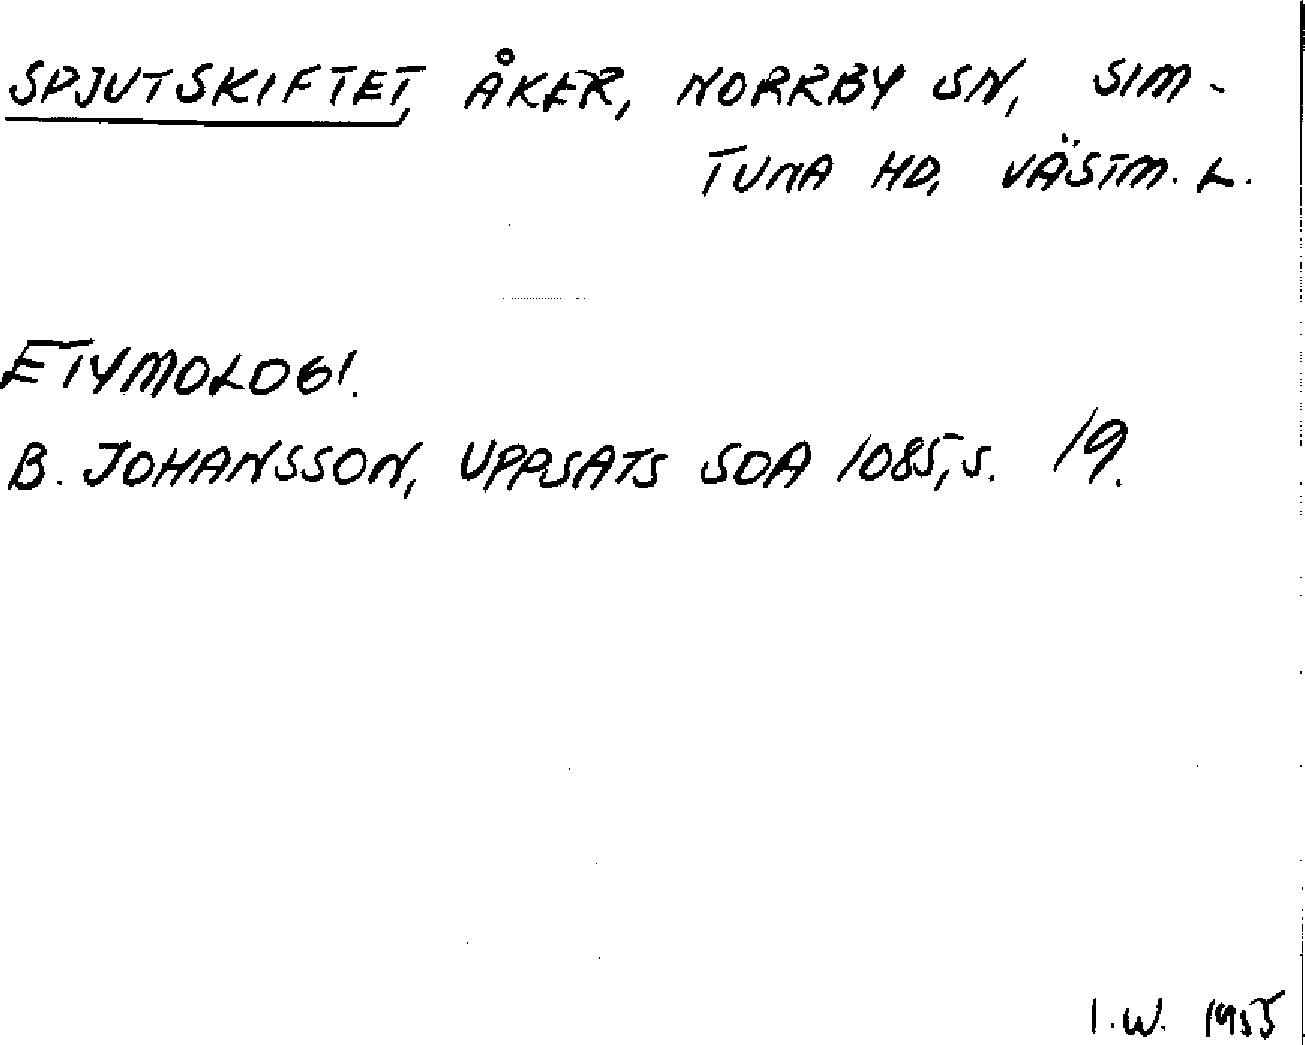 SPJUTSKIFTET, ÅKER, NORRBY SN, SIM-
TUNA HD, VÄSTM. L.
ETYMOLOGI.
B. JOHANSSON, UPPSATS SOA 1085, S. 19.
I.W. 1955